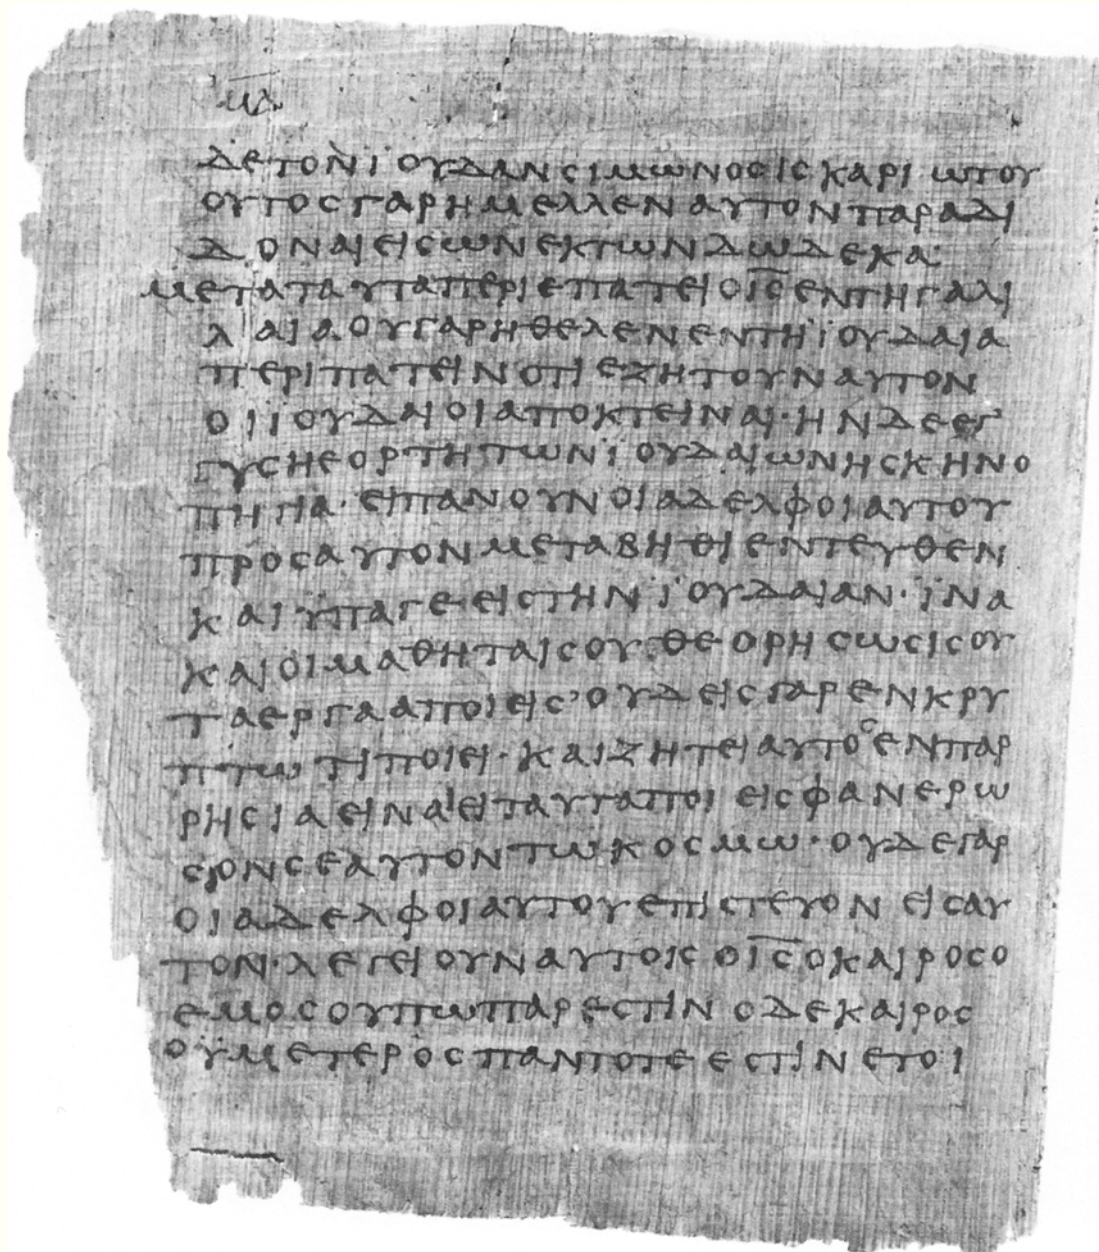 μδ
δετονϊουδανσιμωνοσισκαριωτου
ουτοσγαρημελλεναυτονπαραδι
δοναιεισωνεκτωνδωδεκα:
μεταταυταπεριεπατειοι̅σ̅εντηγαλι
λαιαουγαρηθελενεντηϊουδαια
περιπατεινοτιεζητουναυτον
οιϊουδαιοιαποκτειναι·ηνδεεγ
γυσηεορτητωνϊουδαιωνησκηνο
πηγια·ειπανουνοιαδελφοιαυτου
προσαυτονμεταβηθιεντευθεν
καιϋπαγεειστηνϊουδαιαν·ϊνα
καιοιμαθηταισουθεορησωσισου
ταεργααποιεισ᾽ουδεισγαρενκρυ
πτωτιποιει·καιζητειαυτοσενπαρ
ρησιαειναιειταυταποιεισφανερω
σονσεαυτοντωκοσμω·ουδεγαρ
οιαδελφοιαυτουεπιστευονεισαυ
τον·λεγειουναυτοισοι̅σ̅οκαιροσο
εμοσουπωπαρεστινοδεκαιροσ
οϋμετεροσπαντοτεεστινετοι